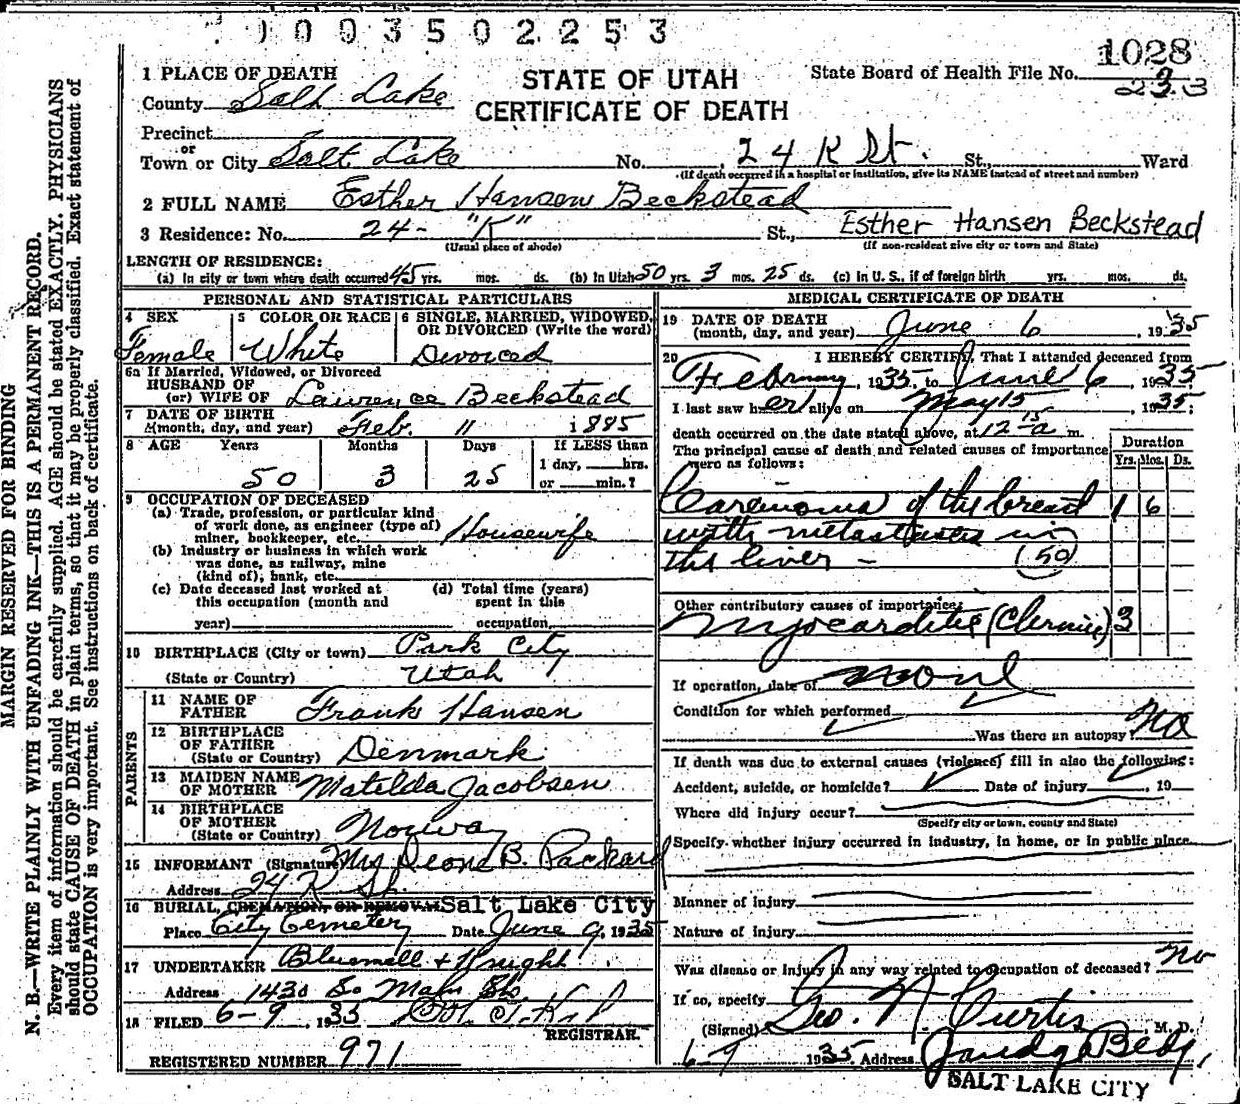 0 0 3 5 0 2 2 5 3
1028
State Board of Health File No. 233
STATE OF UTAH
CERTIFICATE OF DEATH
1 PLACE OF DEATH
County Salt Lake
Precinct
or
Town or City Salt Lake No. 24 K St. St., Ward
(If death occurred in a hospital or institution, give its NAME instead of street and number)
2 FULL NAME Esther Hansen Beckstead
3 Residence: No. 24- "K" St., Esther Hansen Beckstead
(Usual place of abode) (If non-resident give city or town and State)
LENGTH OF RESIDENCE:
(a) In city or town where death occurred 45 yrs. mos. ds. (b) In Utah 50 yrs. 3 mos. 25 ds. (c) In U. S., if of foreign birth yrs. mos. ds.
PERSONAL AND STATISTICAL PARTICULARS
4 SEX Female
5 COLOR OR RACE White
6 SINGLE, MARRIED, WIDOWED, OR DIVORCED (Write the word) Divorced
6a If Married, Widowed, or Divorced
HUSBAND OF
(or) WIFE OF Lawrence Beckstead
7 DATE OF BIRTH
(month, day, and year) Feb. 11 1885
8 AGE Years Months Days If LESS than
50 3 25 1 day, hrs.
or min.?
9 OCCUPATION OF DECEASED
(a) Trade, profession, or particular kind
of work done, as engineer (type of)
miner, bookkeeper, etc. Housewife
(b) Industry or business in which work
was done, as railway, mine
(kind of); bank, etc.
(c) Date deceased last worked at (d) Total time (years)
this occupation (month and spent in this
year) occupation
10 BIRTHPLACE (City or town) Park City
(State or Country) Utah
PARENTS
11 NAME OF
FATHER Frank Hansen
12 BIRTHPLACE
OF FATHER
(State or Country) Denmark
13 MAIDEN NAME
OF MOTHER Matilda Jacobsen
14 BIRTHPLACE
OF MOTHER
(State or Country) Norway
15 INFORMANT (Signature) Mrs Deone B. Packard
Address 24 K St.
16 BURIAL, CREMATION, OR REMOVAL Salt Lake City
Place City Cemetery Date June 9, 1935
17 UNDERTAKER & Knight
Address 1430 So Main St.
18 FILED 6-9, 1935
REGISTRAR.
REGISTERED NUMBER 971
MEDICAL CERTIFICATE OF DEATH
19 DATE OF DEATH
(month, day, and year) June 6, 1935
20 I HEREBY CERTIFY, That I attended deceased from
February, 1935, to June 6, 1935
I last saw her alive on May 15, 1935;
death occurred on the date stated above, at 12 15 a m.
The principal cause of death and related causes of importance
were as follows:
Duration
Yrs. Mos. Ds.
Carcinoma of the breast 1 6
with metastases in
the liver – (50)
Other contributory causes of importance:
Myocarditis (Chronic) 3
If operation, date of None
Condition for which performed
Was there an autopsy? No
If death was due to external causes (violence) fill in also the following:
Accident, suicide, or homicide? Date of injury , 19
Where did injury occur?
(Specify city or town, county and State)
Specify whether injury occurred in industry, in home, or in public place
Manner of injury
Nature of injury
Was disease or injury in any way related to occupation of deceased? No
If so, specify
(Signed) Geo. N. Curtis M. D.
6-9 1935 Address Bldg,
SALT LAKE CITY
MARGIN RESERVED FOR BINDING
N. B.—WRITE PLAINLY WITH UNFADING INK—THIS IS A PERMANENT RECORD.
Every item of information should be carefully supplied. AGE should be stated EXACTLY. PHYSICIANS
should state CAUSE OF DEATH in plain terms, so that it may be properly classified. Exact statement of
OCCUPATION is very important. See instructions on back of certificate.